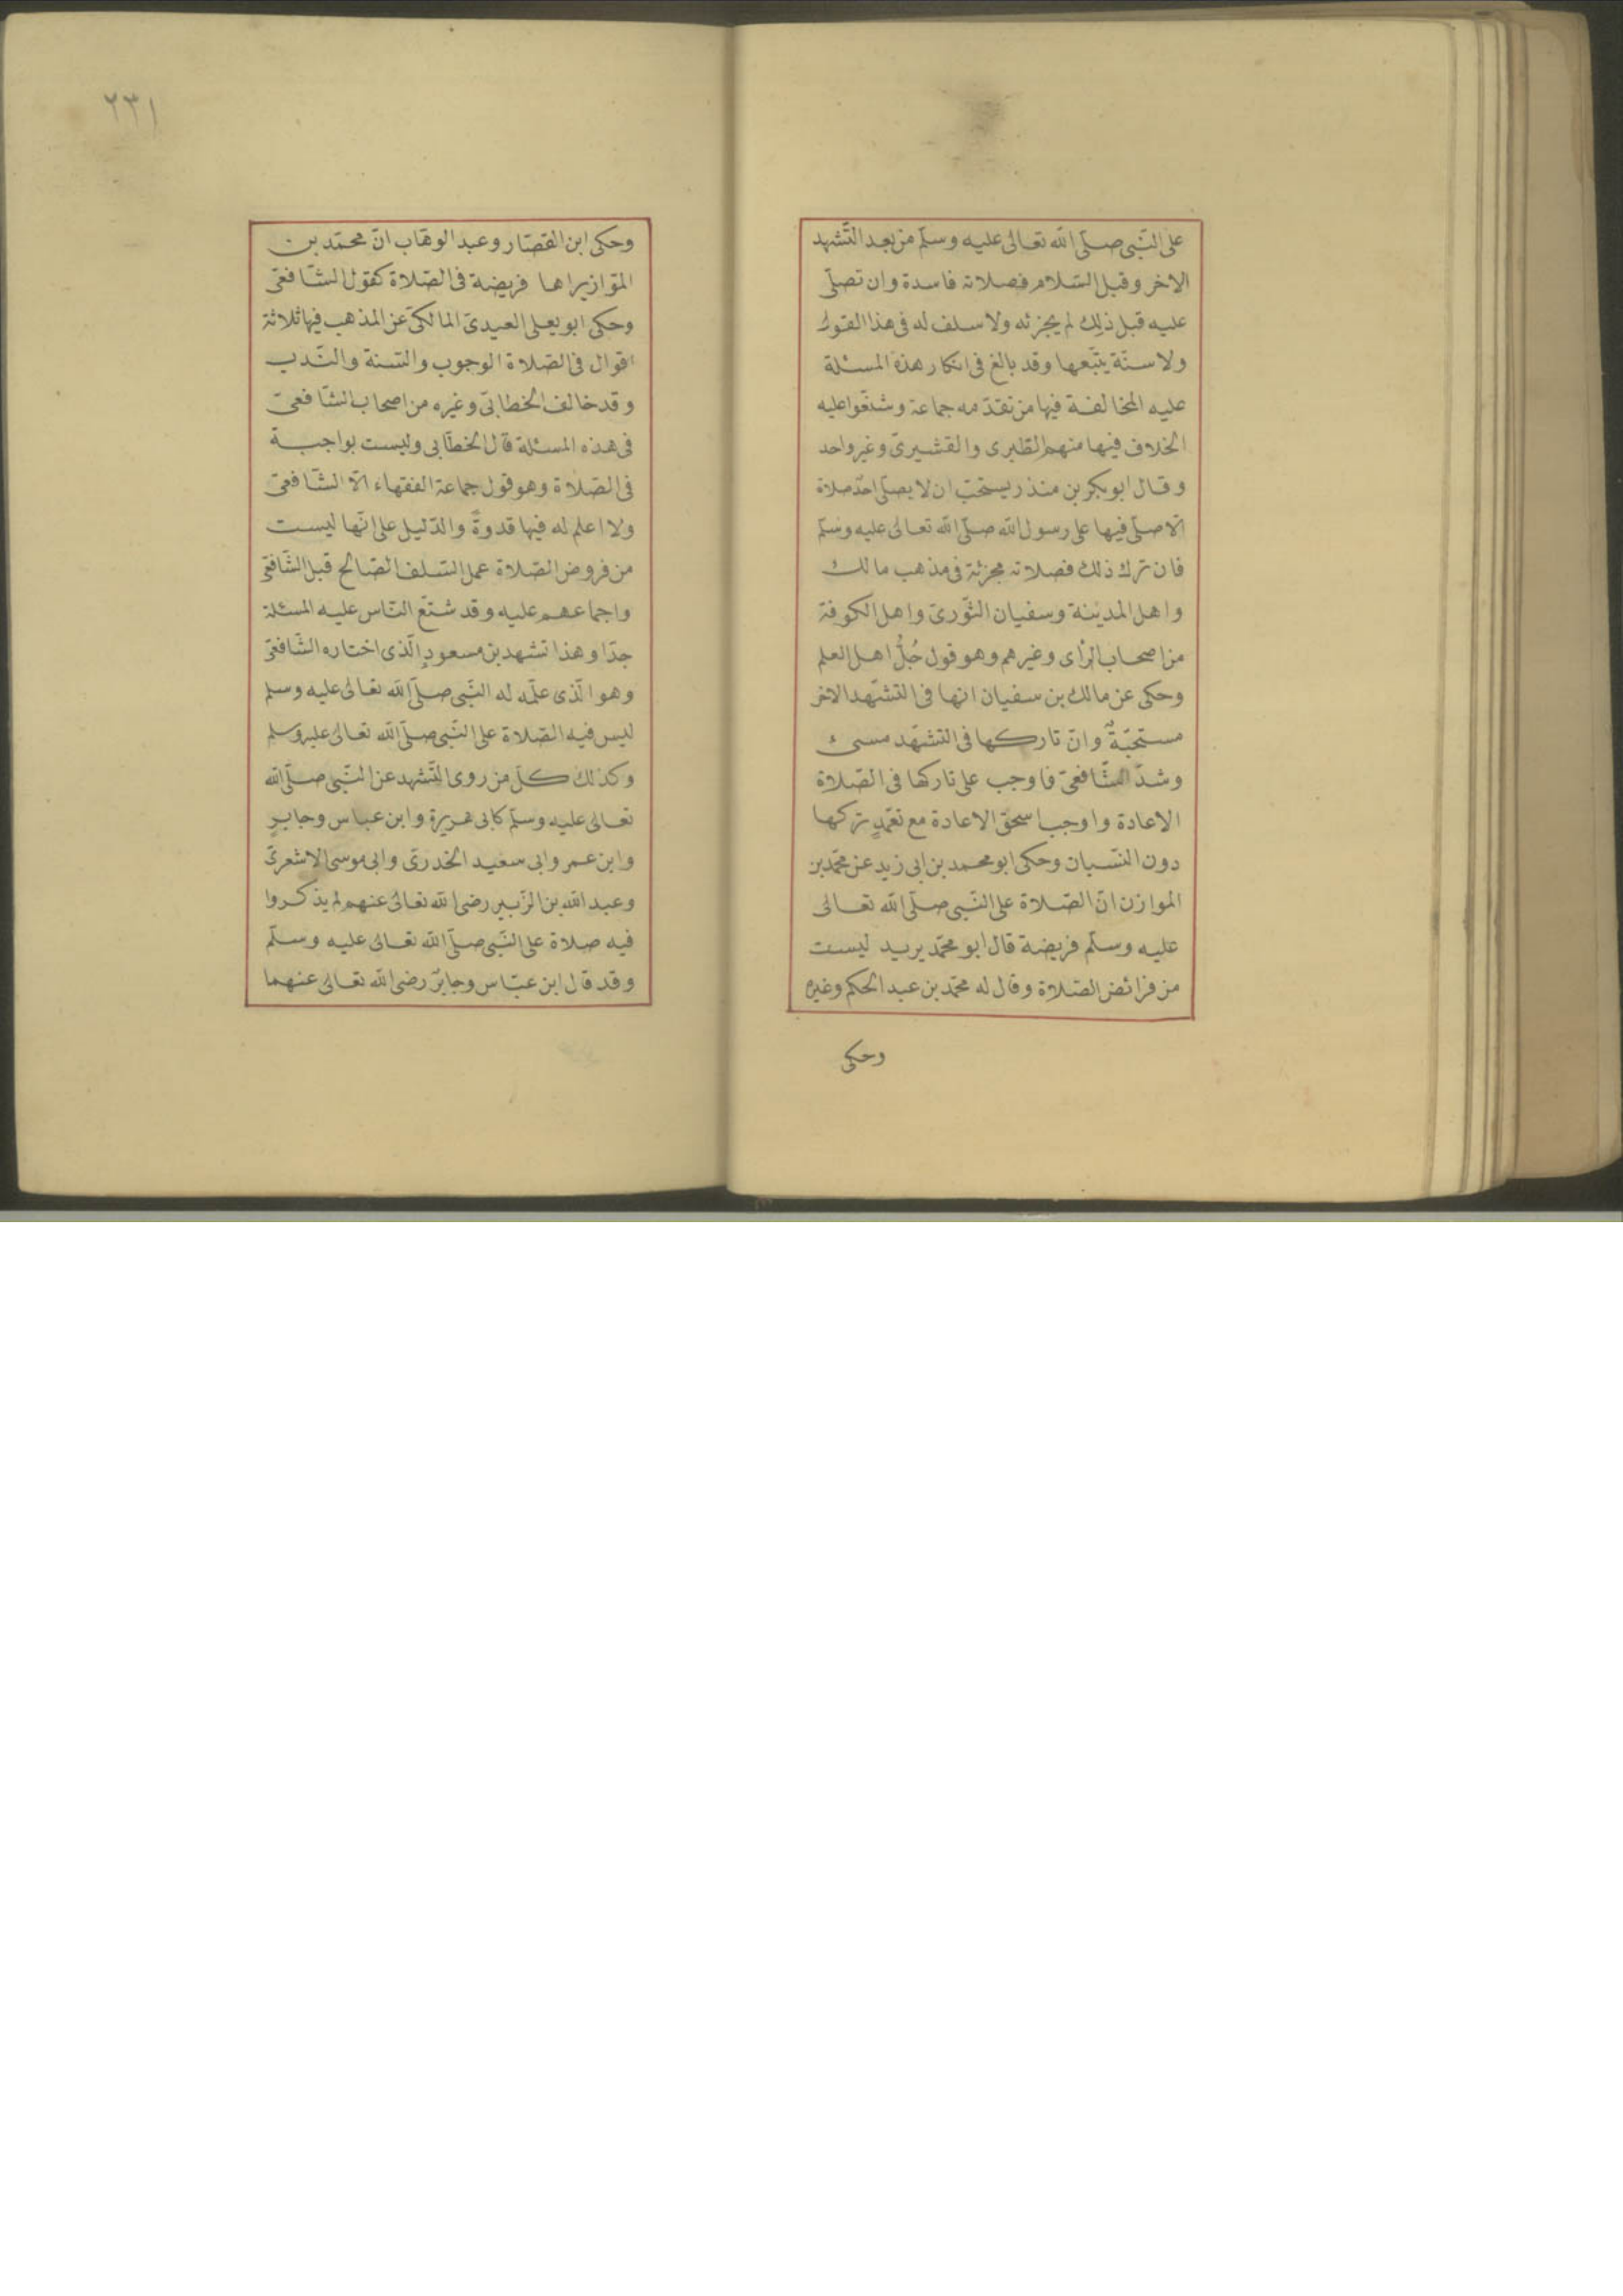 على النّبى صلّى الله تعالى عليه وسلّم من بعد التّشهد
الاخر وقبل السّلام فصلاته فاسدة وان تصلّى
عليه قبل ذلك لم يجزئه ولا سلف له فى هذا القول
ولا سنّة يتّبعها وقد بالغ فى انكار هذه المسئلة
عليه المخالفة فيها من تقدّمه جماعة وشنّعوا عليه
الخلاف فيها منهم الطّبرى والقشيرىّ وغير واحد
وقال ابوبكر بن منذر يستحبّ ان لا يصلّى احدٌ صلاة
الّا صلّى فيها على رسول الله صلّى الله تعالى عليه وسلّم
فان ترك ذلك فصلاته مجزئة فى مذهب مالك
واهل المدينة وسفيان الثّورىّ واهل الكوفة
من اصحاب الرّأى وغيرهم وهو قول جُلُّ اهل العلم
وحكى عن مالك بن سفيان انها فى التشّهد الاخر
مستحبّةٌ وانّ تاركها فى التشهّد مسىء
وشدّ الشّافعىّ فاوجب على تاركها فى الصّلاة
الاعادة واوجب اسحق الاعادة مع تعمّدٍ تركها
دون النّسيان وحكى ابو محمد بن ابى زيد عن محمّد بن
الموازن انّ الصّلاة على النّبى صلّى الله تعالى
عليه وسلّم فريضة قال ابو محمّد يريد ليست
من فرائض الصّلاة وقال له محمّد بن عبد الحكم وغيره
وحكى
٢٣١
وحكى ابن القصّار وعبد الوهّاب انّ محمّد بن
الموّاز يراها فريضة فى الصّلاة كقول الشّافعىّ
وحكى ابو يعلى العبدىّ المالكىّ عن المذهب فيها ثلاثة
اقوال فى الصّلاة الوجوب والسّنة والنّدب
وقد خالف الخطابىّ وغيره من اصحاب الشّافعىّ
فى هذه المسئلة قال الخطّابى وليست بواجبة
فى الصّلاة وهو قول جماعة الفقهاء الّا الشّافعىّ
ولا اعلم له فيها قدوةً والدّليل على انّها ليست
من فروض الصّلاة عمل السّلف الصّالح قبل الشّافعىّ
واجماعهم عليه وقد شنّع النّاس عليه المسئلة
جدّا وهذا تشهد بن مسعودٍ الّذى اختاره الشّافعىّ
وهو الّذى علّمه له النّبى صلّى الله تعالى عليه وسلم
ليس فيه الصّلاة على النّبى صلّى الله تعالى عليه وسلم
وكذلك كلّ من روى التّشهد عن النّبى صلّى الله
تعالى عليه وسلّم كابى هريرة وابن عباس وجابرٍ
وابن عمر وابى سعيد الخدرىّ وابى موسى الاشعرىّ
وعبد الله بن الزّبير رضى الله تعالى عنهم لم يذكروا
فيه صلاة على النّبى صلّى الله تعالى عليه وسلّم
وقد قال ابن عبّاس وجابرٌ رضى الله تعالى عنهما